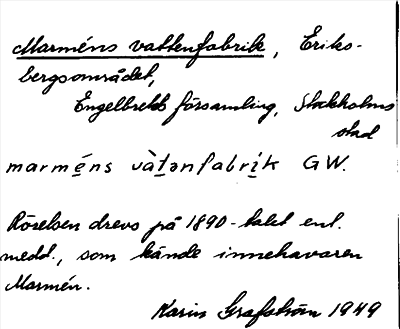 Marméns vattenfabrik, Eriks-
bergsområdet,
Engelbrekts församling, Stockholms
stad
marméns và̀tənfabrik GW.
Rörelsen drevs på 1890-talet enl.
medd., som kände innehavaren
Marmén.
Karin Grafström 1949